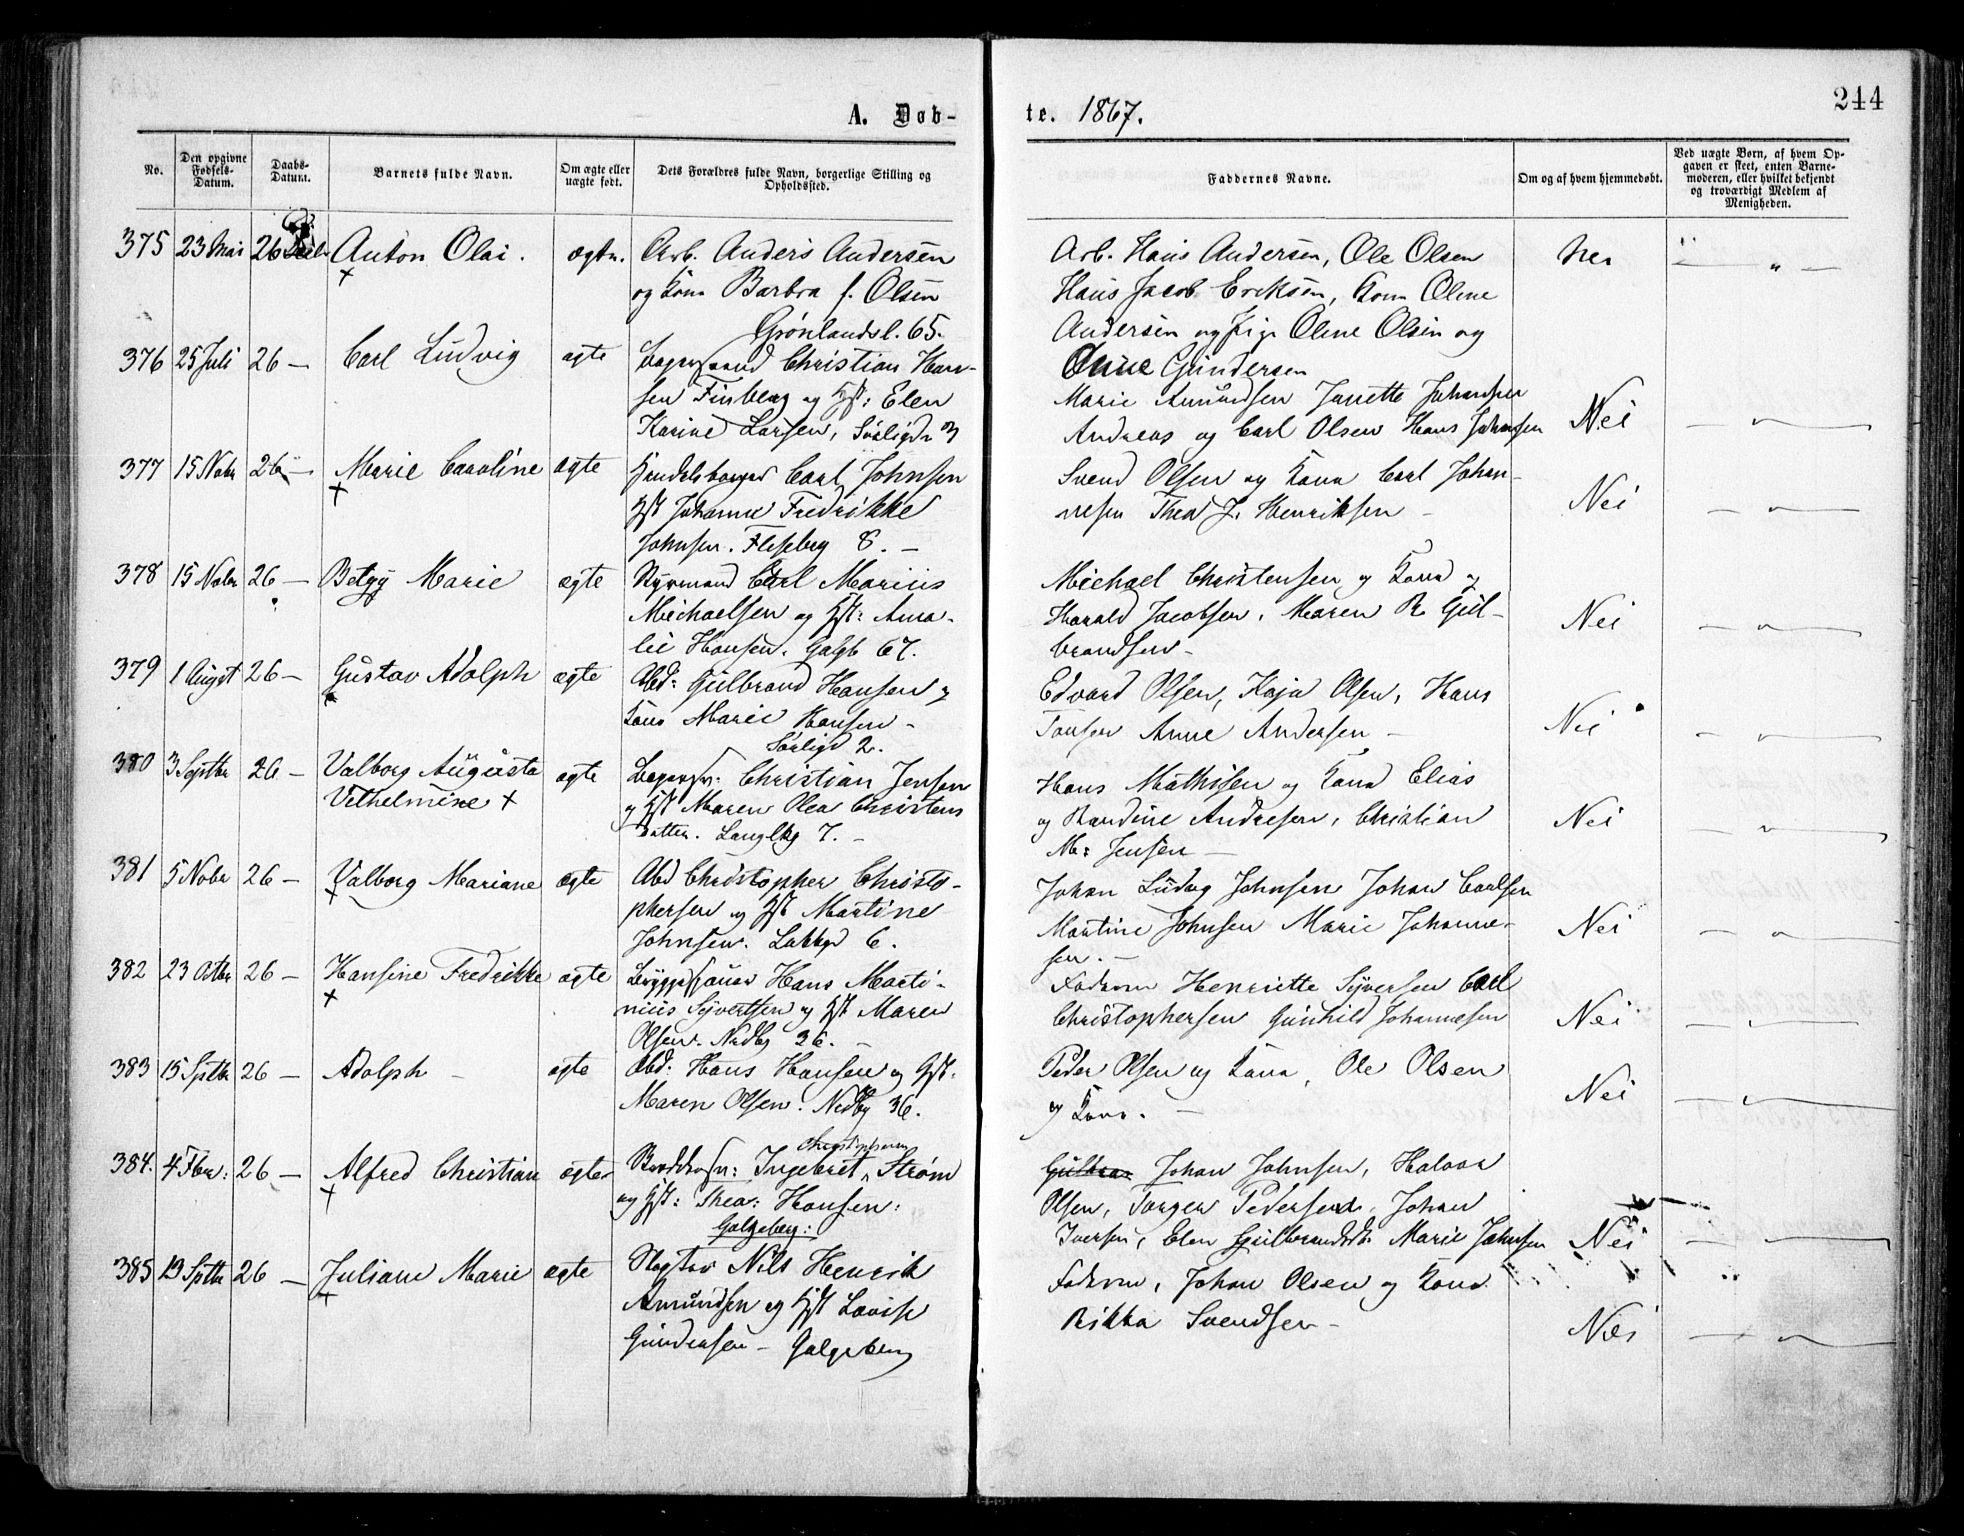 244
A. Døb-
te. 1867.
No.
Den opgivne Fødsels-Datum.
Daabs-Datum.
Barnets fulde Navn.
Om ægte eller uægte født.
Dets Forældres fulde Navn, borgerlige Stilling og Opholdssted.
Faddernes Navne.
Om og af hvem hjemmedøbt.
Ved uægte Børn, af hvem Opgaven er skeet, enten Barnemoderen, eller hvilket bekjendt og troværdigt Medlem af Menigheden.
375 23 Mai 26 Anton Olai. ægte. Arb. Anders Andersen
og Kone Barbra f. Olsen
Grønlandsl. 65.
Arb. Hans Andersen, Ole Olsen
Hans Jacob Eriksen, Kone Oline
Andersen og Pige Oline Olsen og
Gundersen
376 25 Juli 26 — Carl Ludvig ægte Christian Han-
sen Finberg og Hst: Elen
Karine Larsen,
Marie Amundsen Janette Johansen
Andreas og Carl Olsen Hans Johansen Nei
377 15 Nobr 26 — Marie Caroline ægte Handelsborger Carl Johnsen
Hst Johanne Fredrikke
Johnsen. Flesberg 8. —
Svend Olsen og Kona Carl Johan-
nesen Thea J. Henriksen — Nei
378 15 Nobr 26 — Betzy Marie ægte Styrmand Carl Marius
Michaelsen og Hst: Ama-
lie Hansen. Galgb 67.
Michael Christensen og Kona og
Harald Jacobsen, Maren R Gul-
brandsen — Nei
379 1 Augst 26 — Gustav Adolph ægte Abd: Gulbrand Hansen og
Kona Marie Hansen —
Sørligd 2.
Edvard Olsen, Kaja Olsen, Hans
Tonsen Anne Andersen — Nei
380 3 Septbr 26 — Valborg Augusta
Vilhelmine + ægte Christian Jensen
og Hst Maren Olea Christens
datter. Langlkg 7. —
Hans Mathisen og Kona Elias
og Randine Andresen, Christian
M: Jensen — Nei
381 5 Nobr 26 — Valborg Mariane ægte Abd Christopher Christo-
phersen og Hst Martine
Johnsen. Lakkgd 6.
Johan Ludvg Johnsen Johan Carlsen
Martine Johnsen Marie Johanne-
sen. — Nei
382 23 Octbr 26 — Hansine Fredrikke ægte Hans Marti-
nius Syvertsen og Hst Maren
Olsen. Nedbg 36. —
Fadren Henriette Syversen Carl
Christophersen Gunhild Johannesen Nei
383 15 Sptbr 26 — Adolph — ægte Abd: Hans Hansen og Hst:
Maren Olsen. Nedbg 36.
Peder Olsen og Kona, Ole Olsen
og Kona. — Nei
384. 4 Fbr: 26 — Alfred Christian ægte Ingebret Christophersen Strøm
og Hst: Thea: Hansen:
Galgeberg:
Johan Johnsen, Halvor
Olsen, Torger Pedersen, Johan
Iversen, Elen Gulbrandsdt: Marie Johnsen Nei
385 13 Sptbr 26 — Juliane Marie ægte Slagter Nils Henrik
Amundsen og Hst Lovise
Gundersen — Galgeberg
Fadren, Johan Olsen og Kona
Rikka Svendsen — Nei